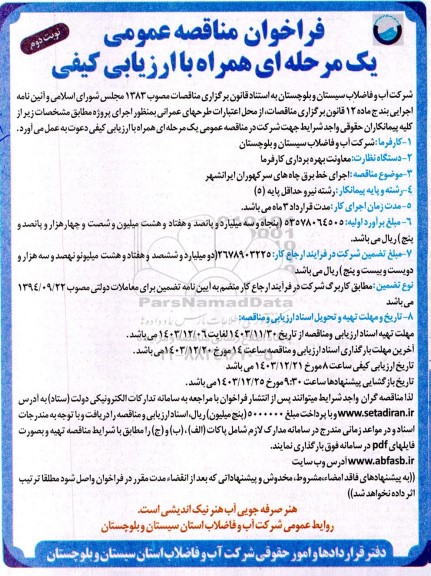 نوبت دوم
فراخوان مناقصه عمومی
یک مرحله ای همراه با ارزیابی کیفی
شرکت آب و فاضلاب سیستان و بلوچستان به استناد قانون برگزاری مناقصات مصوب ۱۳۸۳ مجلس شورای اسلامی و آئین نامه
اجرایی بند ج ماده ۱۲ قانون برگزاری مناقصات، از محل اعتبارات طرحهای عمرانی بمنظور اجرای پروژه مطابق مشخصات زیر از
کلیه پیمانکاران حقوقی واجد شرایط جهت شرکت در مناقصه عمومی یک مرحله ای همراه با ارزیابی کیفی دعوت به عمل می آورد.
۱-کارفرما: شرکت آب و فاضلاب سیستان و بلوچستان
۲-دستگاه نظارت: معاونت بهره برداری کارفرما
۳-موضوع مناقصه: اجرای خط برق چاه های سرکهوران ایرانشهر
۴-رشته و پایه پیمانکار: رشته نیرو حداقل پایه (۵)
۵- مدت زمان اجرای کار: مدت قرارداد ۳ ماه می باشد.
۶-مبلغ برآورد اولیه: ۵۳۵۷۸۰۶۴۵۰۵ (پنجاه و سه میلیارد و پانصد و هفتاد و هشت میلیون و شصت و چهار هزار و پانصد و
پنج) ریال می باشد.
۷-مبلغ تضمین شرکت در فرایند ارجاع کار: ۲۶۷۸۹۰۳۲۲۵ (دو میلیارد و ششصد و هفتاد و هشت میلیون و نهصد و سه هزار و
دویست و بیست و پنج) ریال می باشد
نوع تضمین: مطابق کاربرگ شرکت در فرآیند ارجاع کار منضم به آیین نامه تضمین برای معاملات دولتی مصوب ۱۳۹۴/۰۹/۲۲
می باشد
۸- تاریخ و مهلت تهیه و تحویل اسناد ارزیابی و مناقصه:
مهلت تهیه اسناد ارزیابی و مناقصه از تاریخ ۱۴۰۳/۱۱/۳۰ لغایت ۱۴۰۳/۱۲/۰۶ می باشد.
آخرین مهلت بارگذاری اسناد ارزیابی و مناقصه ساعت ۱۴ مورخ ۱۴۰۳/۱۲/۲۰ می باشد
تاریخ ارزیابی کیفی ساعت ۸ مورخ ۱۴۰۳/۱۲/۲۱ می باشد
تاریخ بازگشایی پیشنهادها ساعت ۹:۳۰ مورخ ۱۴۰۳/۱۲/۲۵ می باشد
لذا مناقصه گران واجد شرایط میتوانند پس از انتشار فراخوان با مراجعه به سامانه تدارکات الکترونیکی دولت (ستاد) به آدرس
www.setadiran.ir و با پرداخت مبلغ ۵۰۰۰۰۰۰ (پنج میلیون) ریال، اسناد ارزیابی و مناقصه را دریافت و با توجه به مندرجات
اسناد و در مواعد زمانی مندرج در سامانه مدارک لازم شامل پاکات (الف)، (ب) و (ج) را مطابق با شرایط مناقصه تهیه و بصورت
فایلهای pdf در سامانه فوق بارگذاری نمایند.
www.abfasb.ir آدرس وب سایت
((به پیشنهادهای فاقد امضاء، مشروط، مخدوش و پیشنهاداتی که بعد از انقضاء مدت مقرر در فراخوان واصل شود مطلقا ترتیب
اثر داده نخواهد شد))
هنر صرفه جویی آب هنر نیک اندیشی است.
روابط عمومی شرکت آب و فاضلاب استان سیستان و بلوچستان
دفتر قراردادها و امور حقوقی شرکت آب و فاضلاب استان سیستان و بلوچستان
ParsNamadData